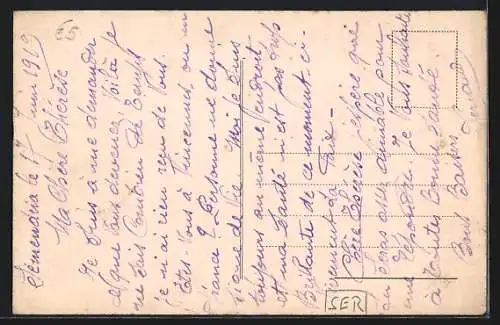 Semendria le 17 juin 1919
Ma Chère Thérèse
Je suis à me demander
ce que vous devenez voilà je
ne sais combien de temps
je n'ai rien reçu de vous.
Êtes-vous à Vincennes, ou en
France? Personne ne donne
signe de vie. Moi je suis
toujours au même endroit
et ma santé n'est pas trop
Brillante de ce moment-ci.
Chère Thérèse j'espère que
tu seras assez aimable pour
me répondre. Je vous souhaite
à toutes bonne santé.
Bons Baisers
SER